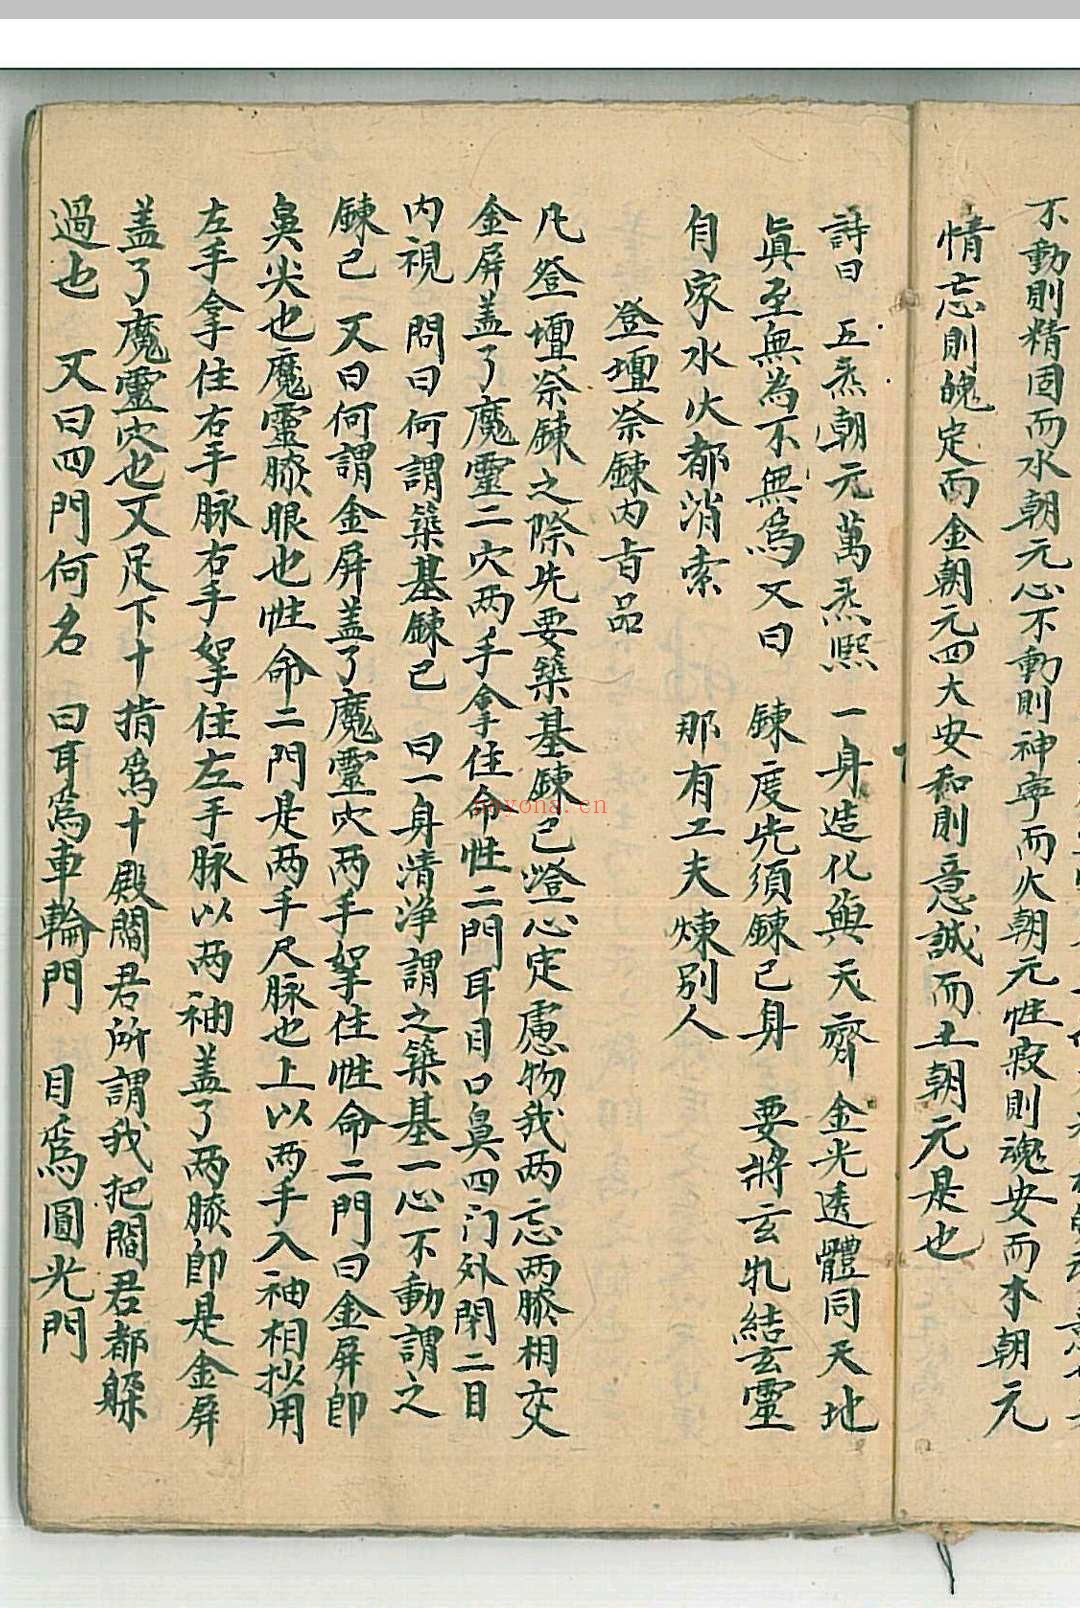 不動則精固而水朝元心不動則神寧而火朝元性寂則魂安而木朝元
情忘則魄定而金朝元四大安和則意誠而土朝元是也
詩曰 五炁朝元萬炁熙 一身造化與天齊 金光透體同天地
真至無為不無為 又曰 鍊度先須鍊己身 要將玄牝結玄靈
自家水火都消索 那有工夫煉別人
登壇祭鍊內旨品
凡登壇祭鍊之際先要築基鍊己澄心定慮物我两忘两膝相交
金屏盖了魔靈二穴两手拿住命性二門耳目口鼻四门外閉二目
内視 問曰何謂築基鍊己 曰一身清净謂之築基一心不動謂之
鍊己 又曰何謂金屏盖了魔靈穴两手拏住性命二門曰金屏即
鼻尖也魔靈膝眼也性命二門是两手尺脉也上以两手入袖相抄用
左手拿住右手脉右手拏住左手脉以两袖盖了两膝即是金屏
盖了魔靈穴也又足下十指爲十殿閻君所謂我把閻君都躲
過也 又曰四門何名 曰耳爲車輪門 目爲圓光門
hoyona.cn